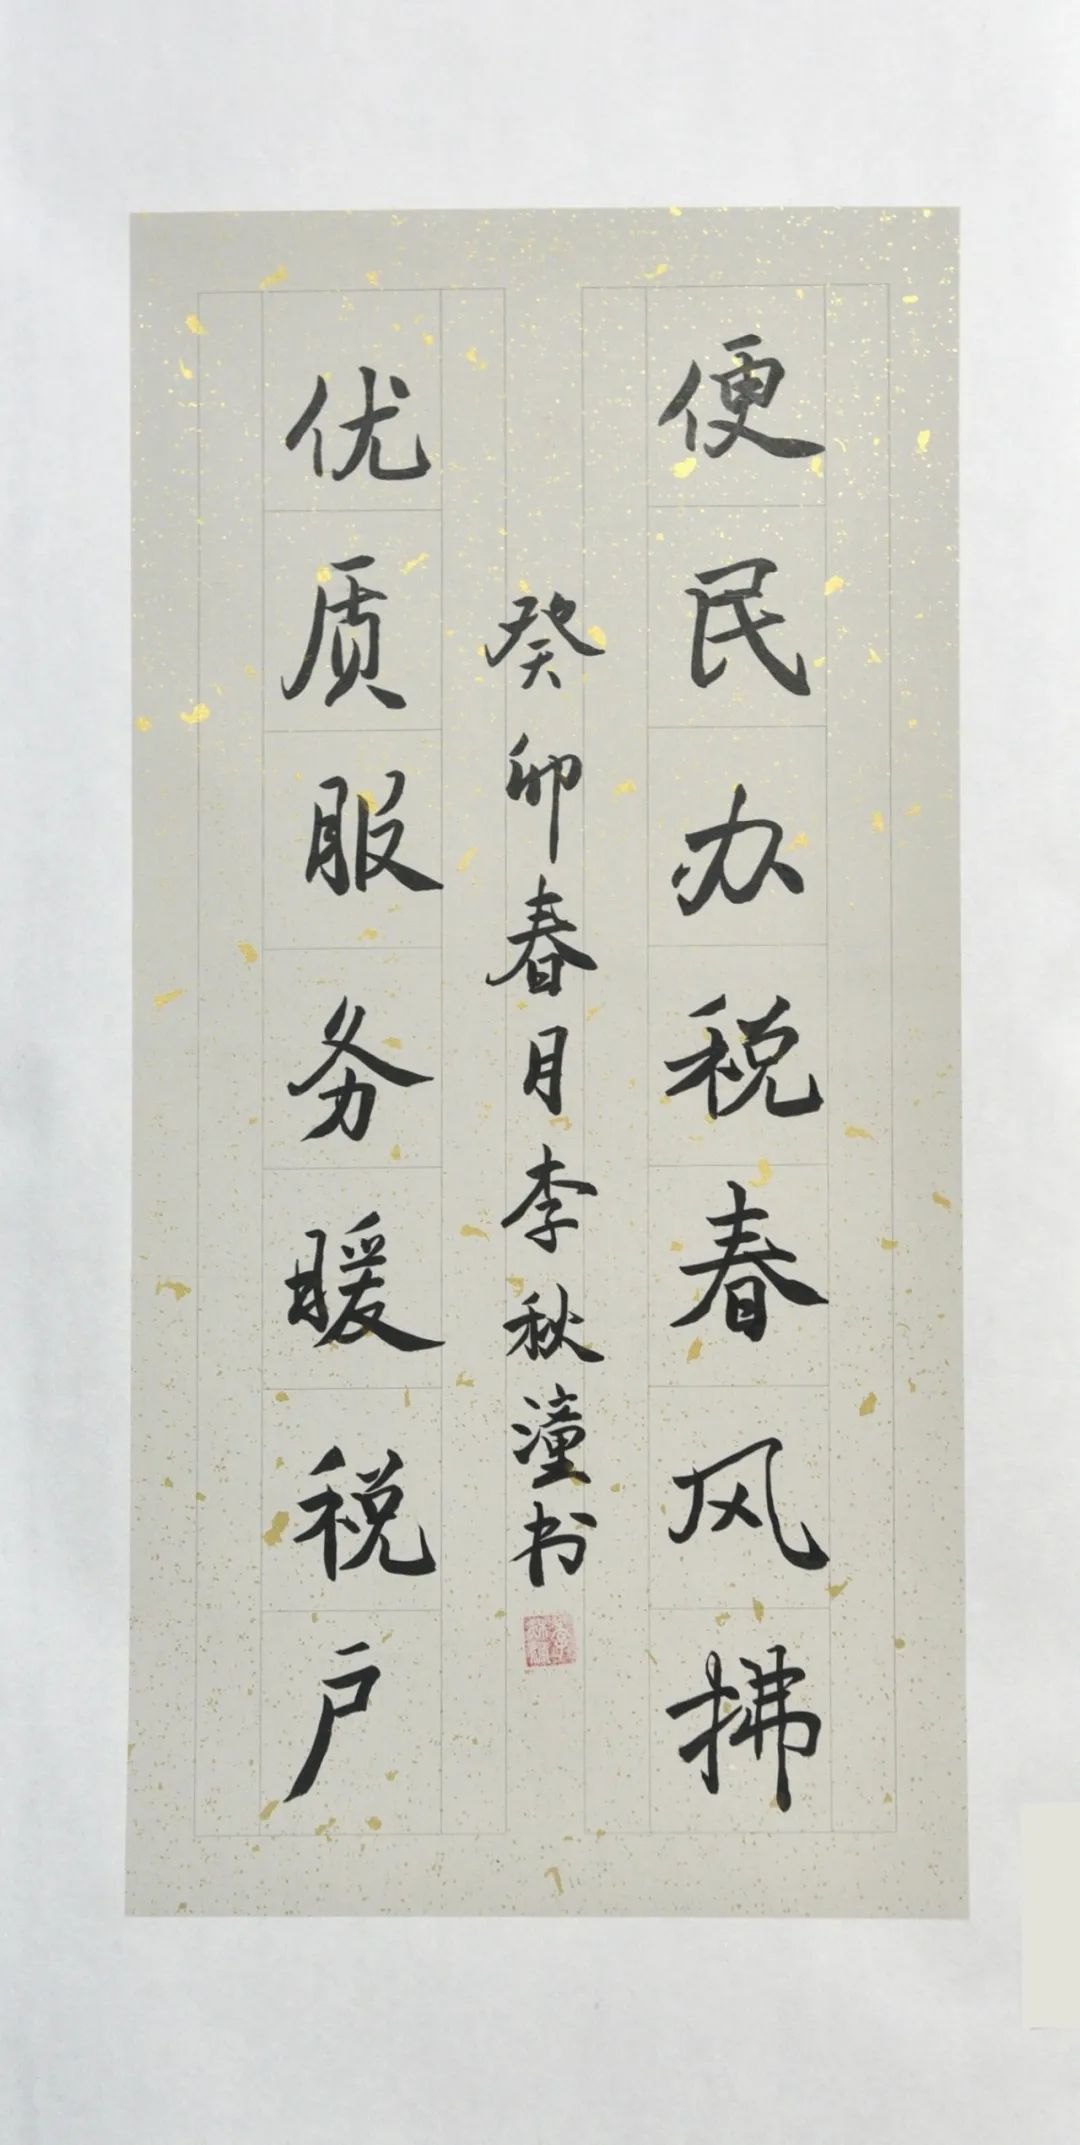 便民办税春风拂
优质服务暖税户
癸卯春月李秋潼书